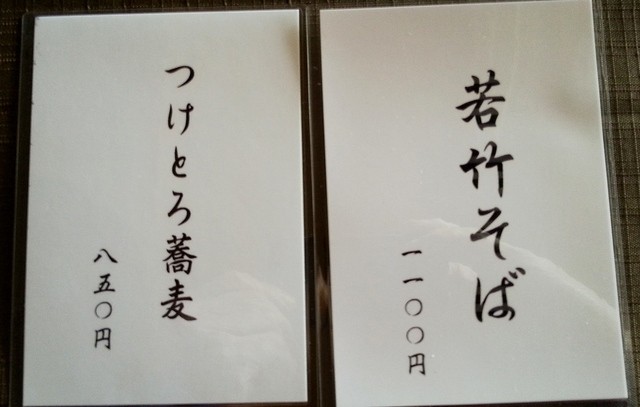 つけとろ蕎麦
八五〇円
若竹そば
一一〇〇円